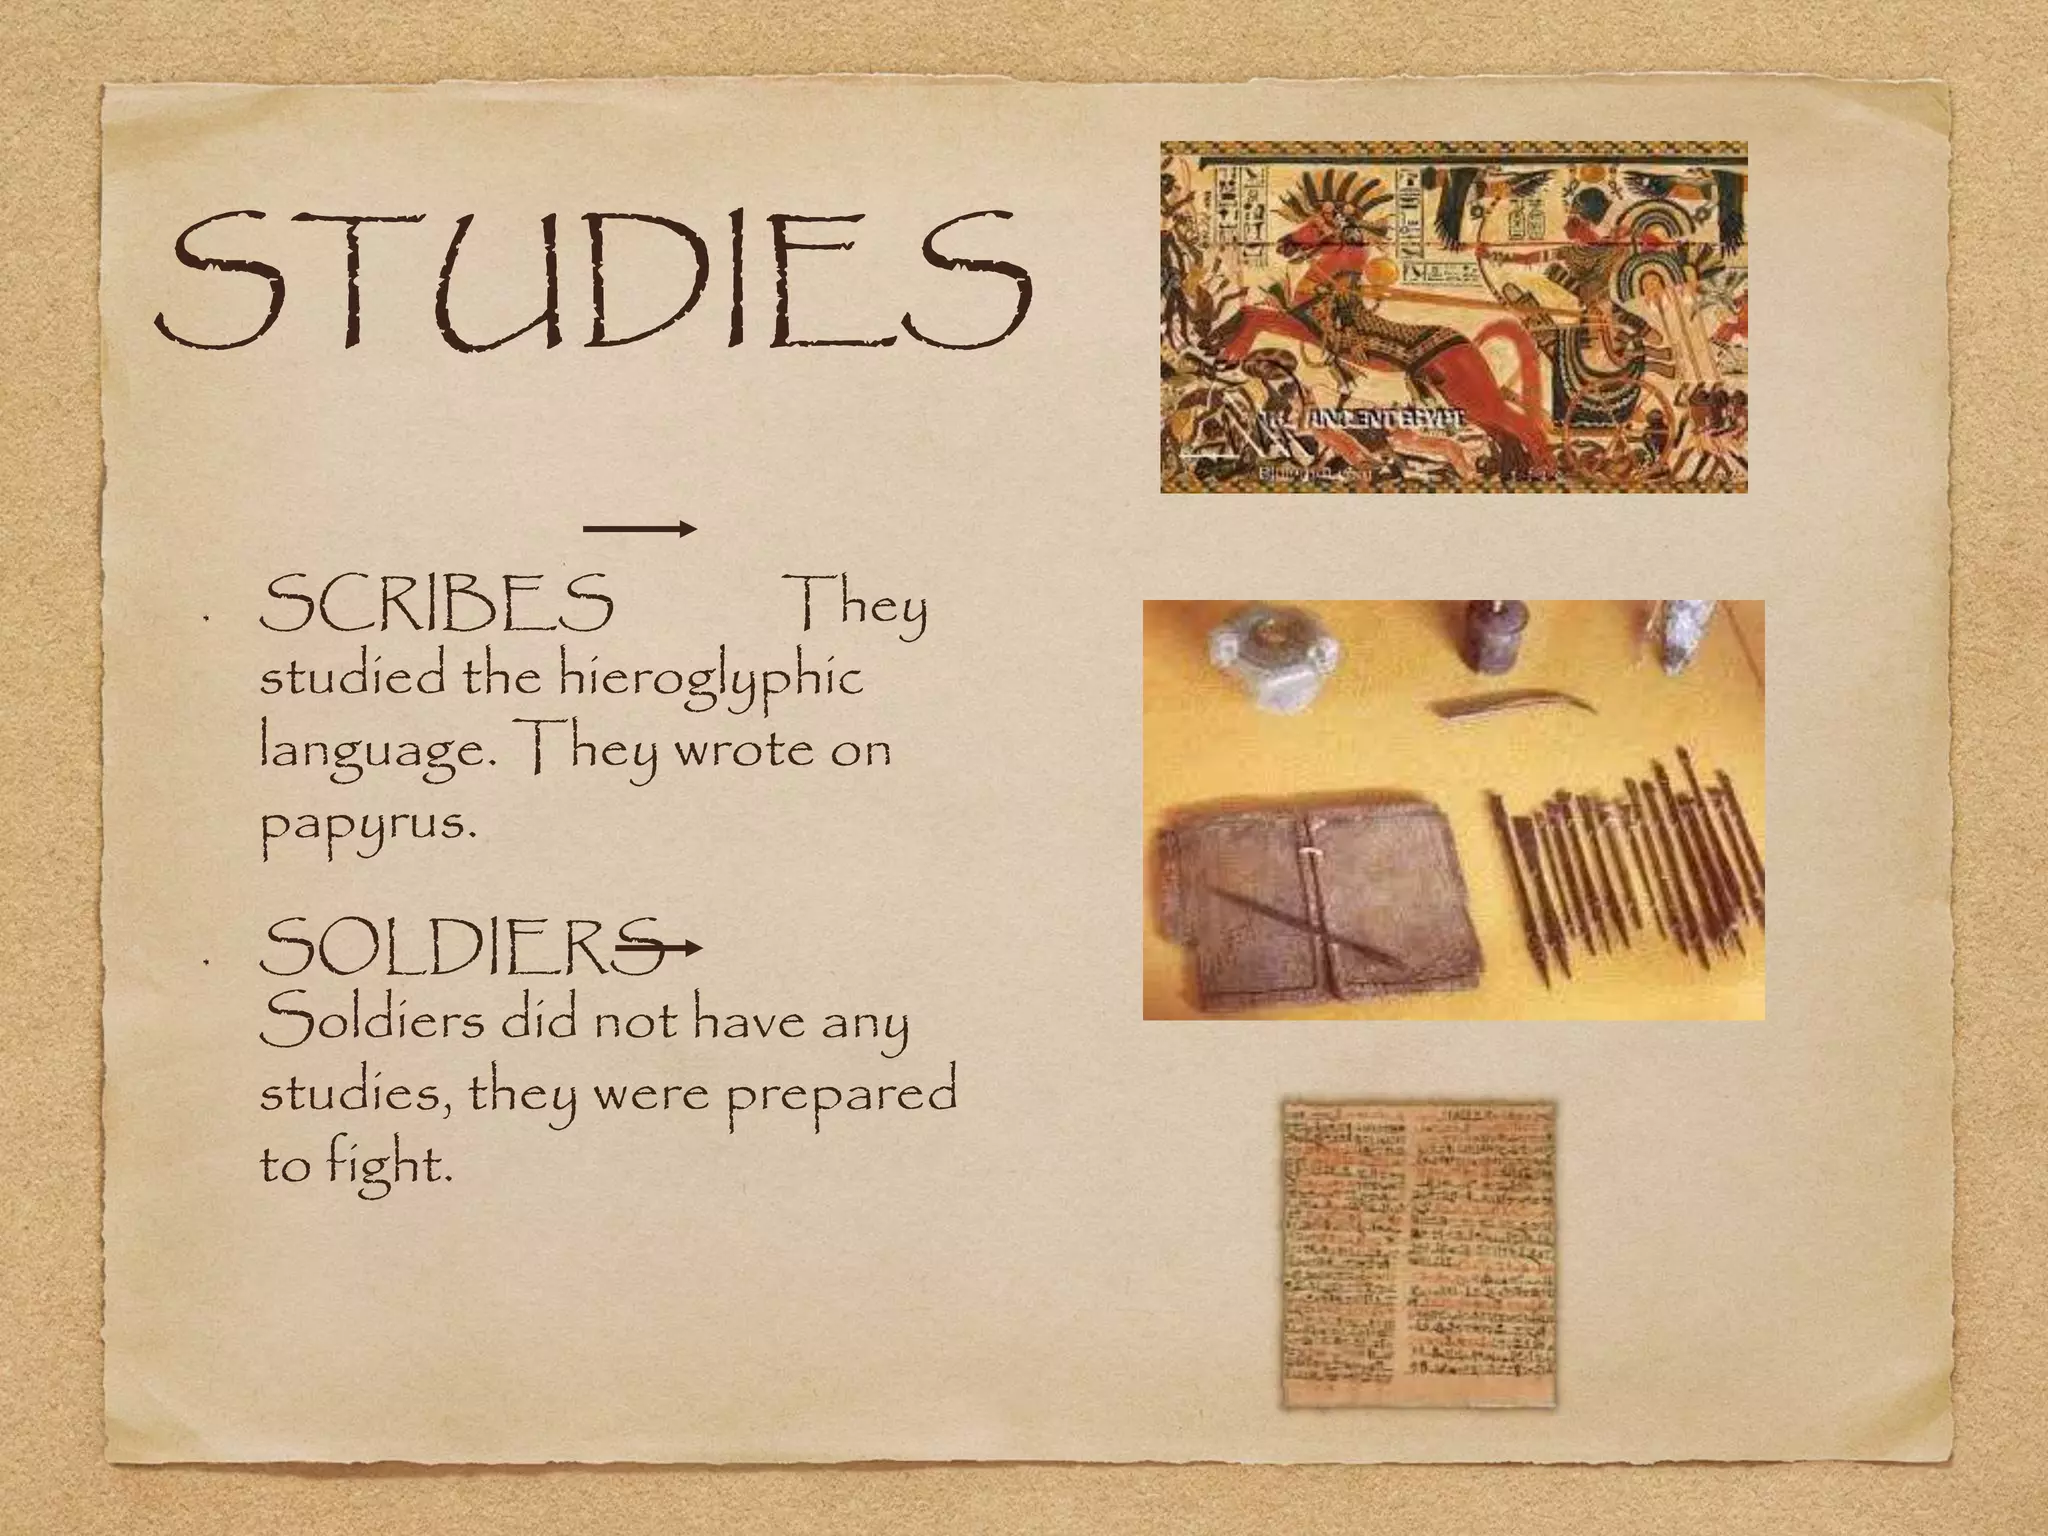 STUDIES
SCRIBES → They
studied the hieroglyphic
language. They wrote on
papyrus.
SOLDIERS →
Soldiers did not have any
studies, they were prepared
to fight.
ANCIENT EGYPT